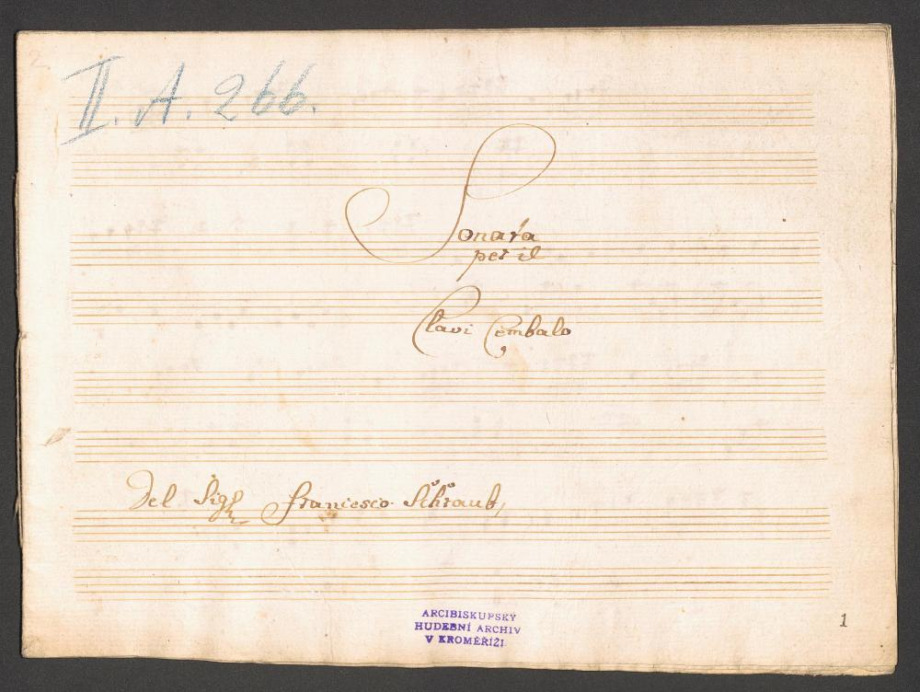 II. A. 266.
Sonata
per il
Clavi Cembalo
Del Sigl: Francesco Schraub,
ARCIBISKUPSKÝ
HUDEBNÍ ARCHIV
V KROMĚŘÍŽI
1